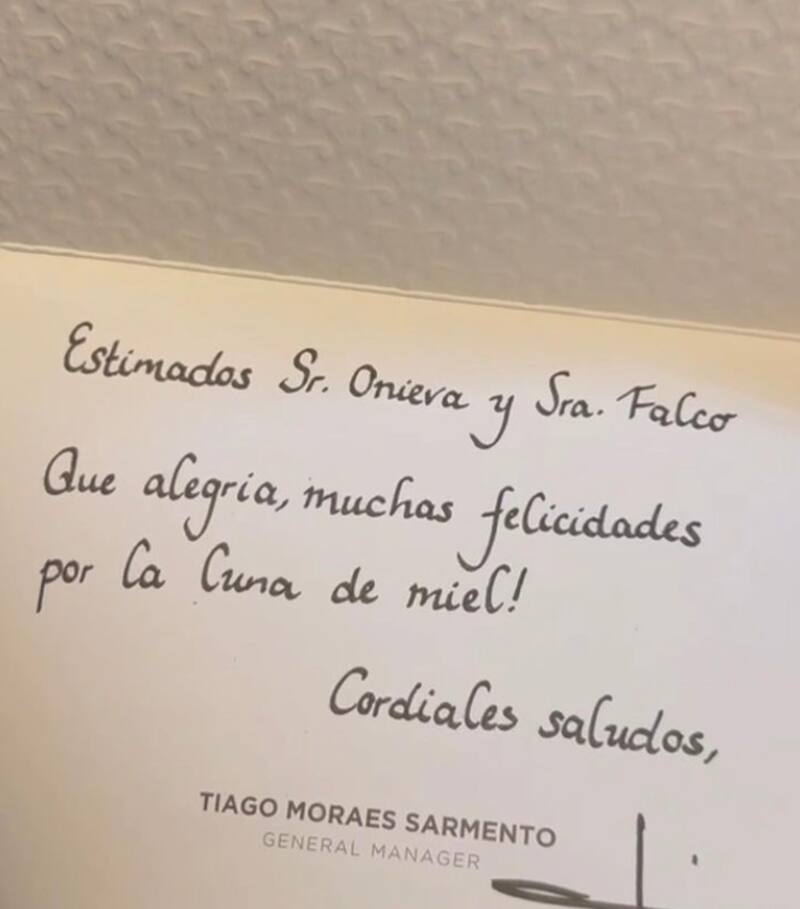 Estimados Sr. Onieva y Sra. Falco
Que alegria, muchas felicidades
por la luna de miel!
Cordiales saludos,
TIAGO MORAES SARMENTO
GENERAL MANAGER